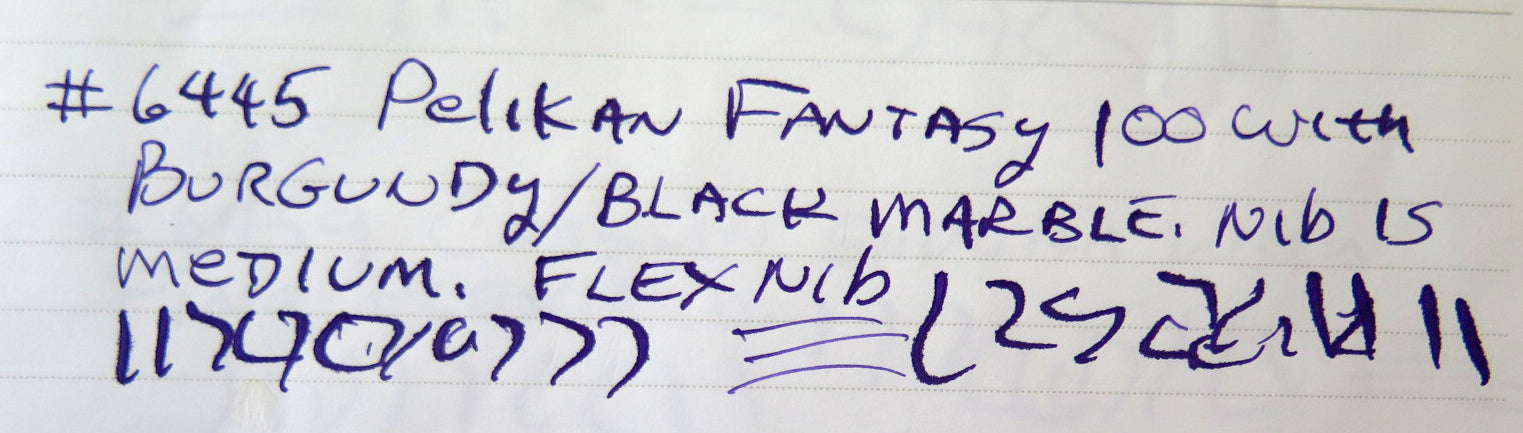 #6445 Pelikan Fantasy 100 with
Burgundy/Black marble. Nib is
medium. Flex Nib